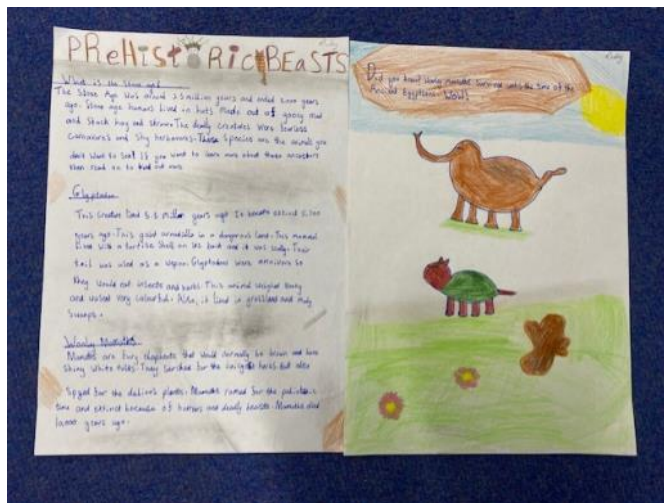 PReHistORic BEaSTS
What is the stone age?
The Stone Age was around 2.5 million years and ended 5,000 years
ago. Stone age humans lived in huts made out of gooey mud
and stuck hay and straw. The deadly creatures were fearless
carnivores and shy herbivores. These species are the animals you
don't want to see! If you want to learn more about these ancestors
then read on to find out more
Glyptodon
This creature lived 5.3 million years ago. It became extinct
years ago. This giant armadillo in a dangerous land. This mammal
lived with a tortise shell on its back and it was scaly. Their
tail was used as a wepon. Glyptodons were omnivors so
they would eat insects and herbs. This animal weighed
and wasnt very colourful. Also, it lived in grassland and muddy
swamps.
Wooly Mamoths
Mamoths are furry elephants that would normally be brown and have
shiny white tusks. They serched for the herbs but also
Spyed for the plants. Mamoths romed for the
time and extinct because of humans and deadly beasts. Mamoths died
years ago.
Ruby
Did you know? Wooly Mamoths survived until the time of the
Ancient Egyptians. Wow!